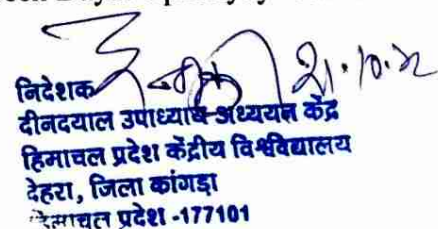 21.10.22
निदेशक
दीनदयाल उपाध्याय अध्ययन केंद्र
हिमाचल प्रदेश केंद्रीय विश्वविद्यालय
देहरा, जिला कांगड़ा
हिमाचल प्रदेश -177101